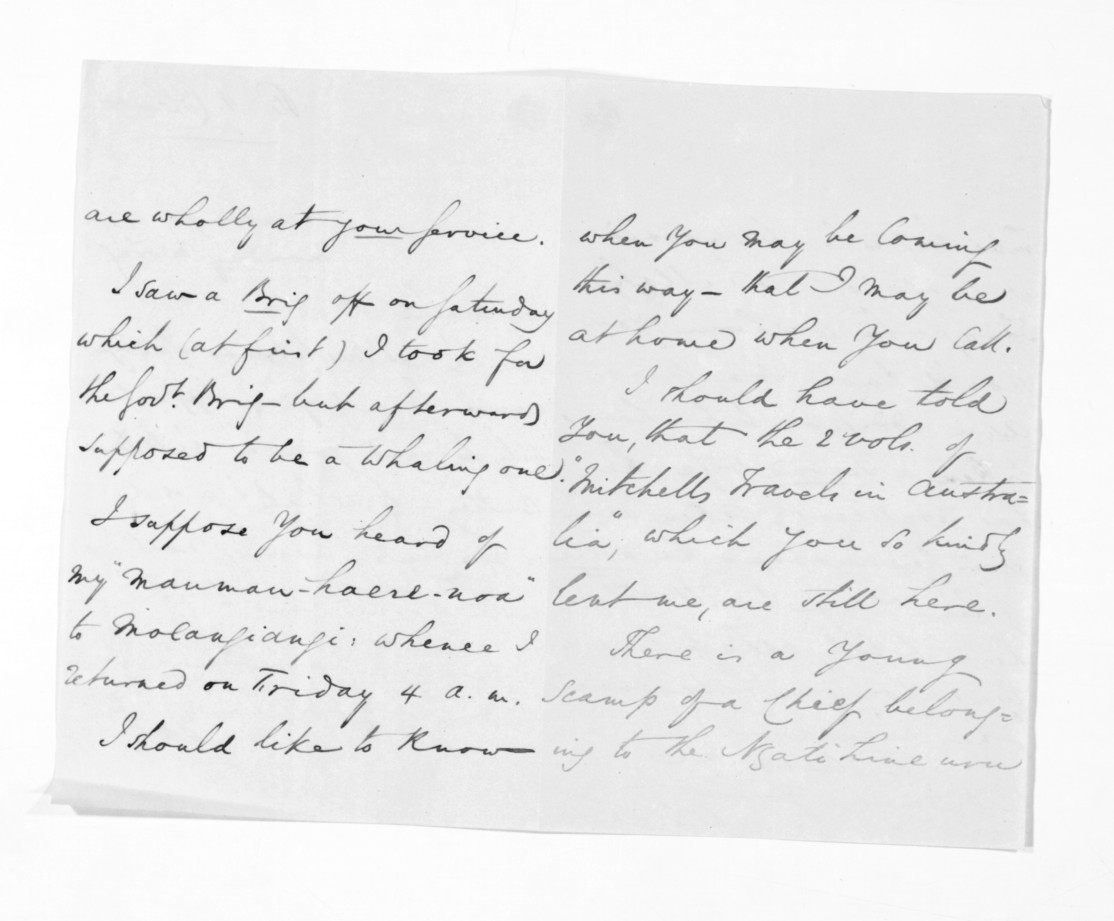 are wholly at your service.
I saw a Brig off on Saturday
which (at first) I took for
the Govt. Brig – but afterwards
supposed to be a whaling one.
I suppose You heard of
my "mauman-haere-noa"
to Motangiangi: whence I
returned on Friday 4 a.m.
I should like to know
when You may be Coming
this way – that I may be
at home when You Call.
I should have told
You, that the 2 vols. of
"Mitchells Travels in Austra=
lia", which You so kindly
lent me, are still here.
There is a Young
Scamp of a Chief belong=
ing to the Ngatihineuru